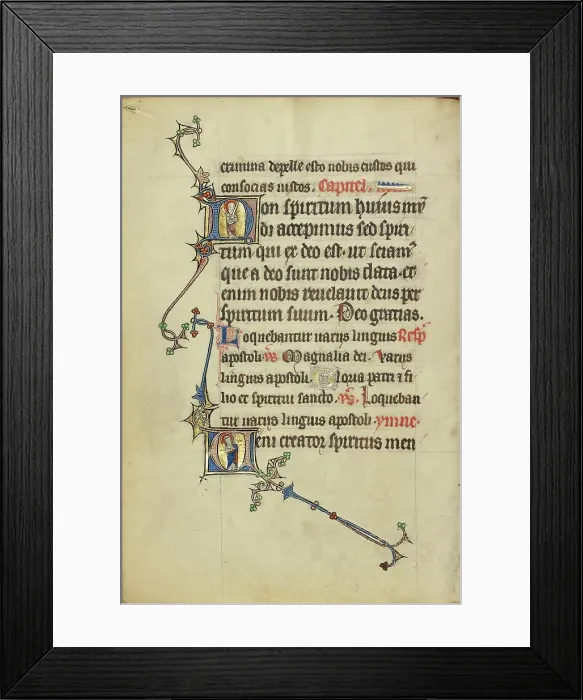 crimina depelle esto nobis custos qui
consocias iustos. Capitel.
Non spiritum huius mū
di accepimus sed spiri
tum qui ex deo est. ut sciam'
que a deo sunt nobis data. et
enim nobis reuelauit deus per
spiritum suum. Deo gratias.
Loquebantur uarijs linguis Resp̄
apostoli. v̄s. Magnalia dei. Varijs
linguis apostoli. Gloria patri et fi
lio et spiritui sancto. v̄s. Loqueban
tur uarijs linguis apostoli. ymne.
Veni creator spiritus men